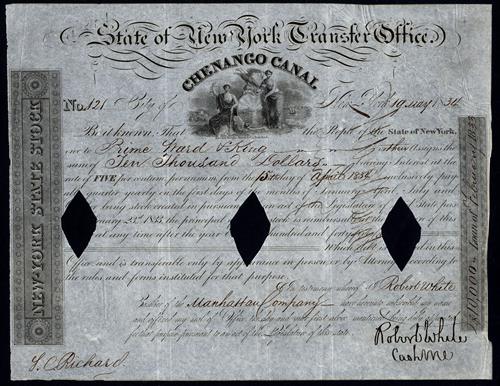 State of New York Transfer Office.
CHENANGO CANAL
No. 121 City of New York 19 May 1834
Be it known, That the People of the State of New York,
owe to Prime Ward & King or their Assigns the
sum of Ten Thousand Dollars bearing Interest at the
of FIVE per centum per annum from the 1st day of April 1834 inclusively pay
quarterly on the first days of the months of January, April, July and
being stock created in pursuance of an act of the Legislature of the State pass
February 23rd 1833, the principal of which stock is reimbursable of this
at any time after the year hundred and forty
Which Debt is in this
Office and is transferable only by appearance in person or by Attorney according to
the rules and forms instituted for that purpose.
In testimony whereof I Robert White
Cashier of the Manhattan Company have hereunto subscribed my name
and affixed my seal of Office the day and year first above mentioned being duly
for that purpose pursuant to an act of the Legislature of this state.
J. C. Richard
Robert White
Cashier
NEW-YORK STATE STOCK
$10,000
1833